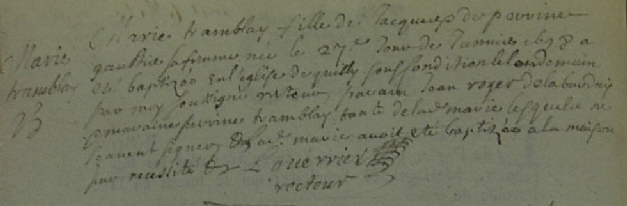 Marie tramblay
Marie tramblay fille de Jacques et de perrine
gaultier sa femme née le 27e Jour de Janvier 1698 a
été baptizée en l'eglise de quilly sous condition le landemain
par moy soussigné recteur parain Jean roger de la
maraine perrine tramblay tante de lad marie lesquels ne
scavent signer lad marie avoit eté baptizée a la maison
par necessité
L guerrier
recteur